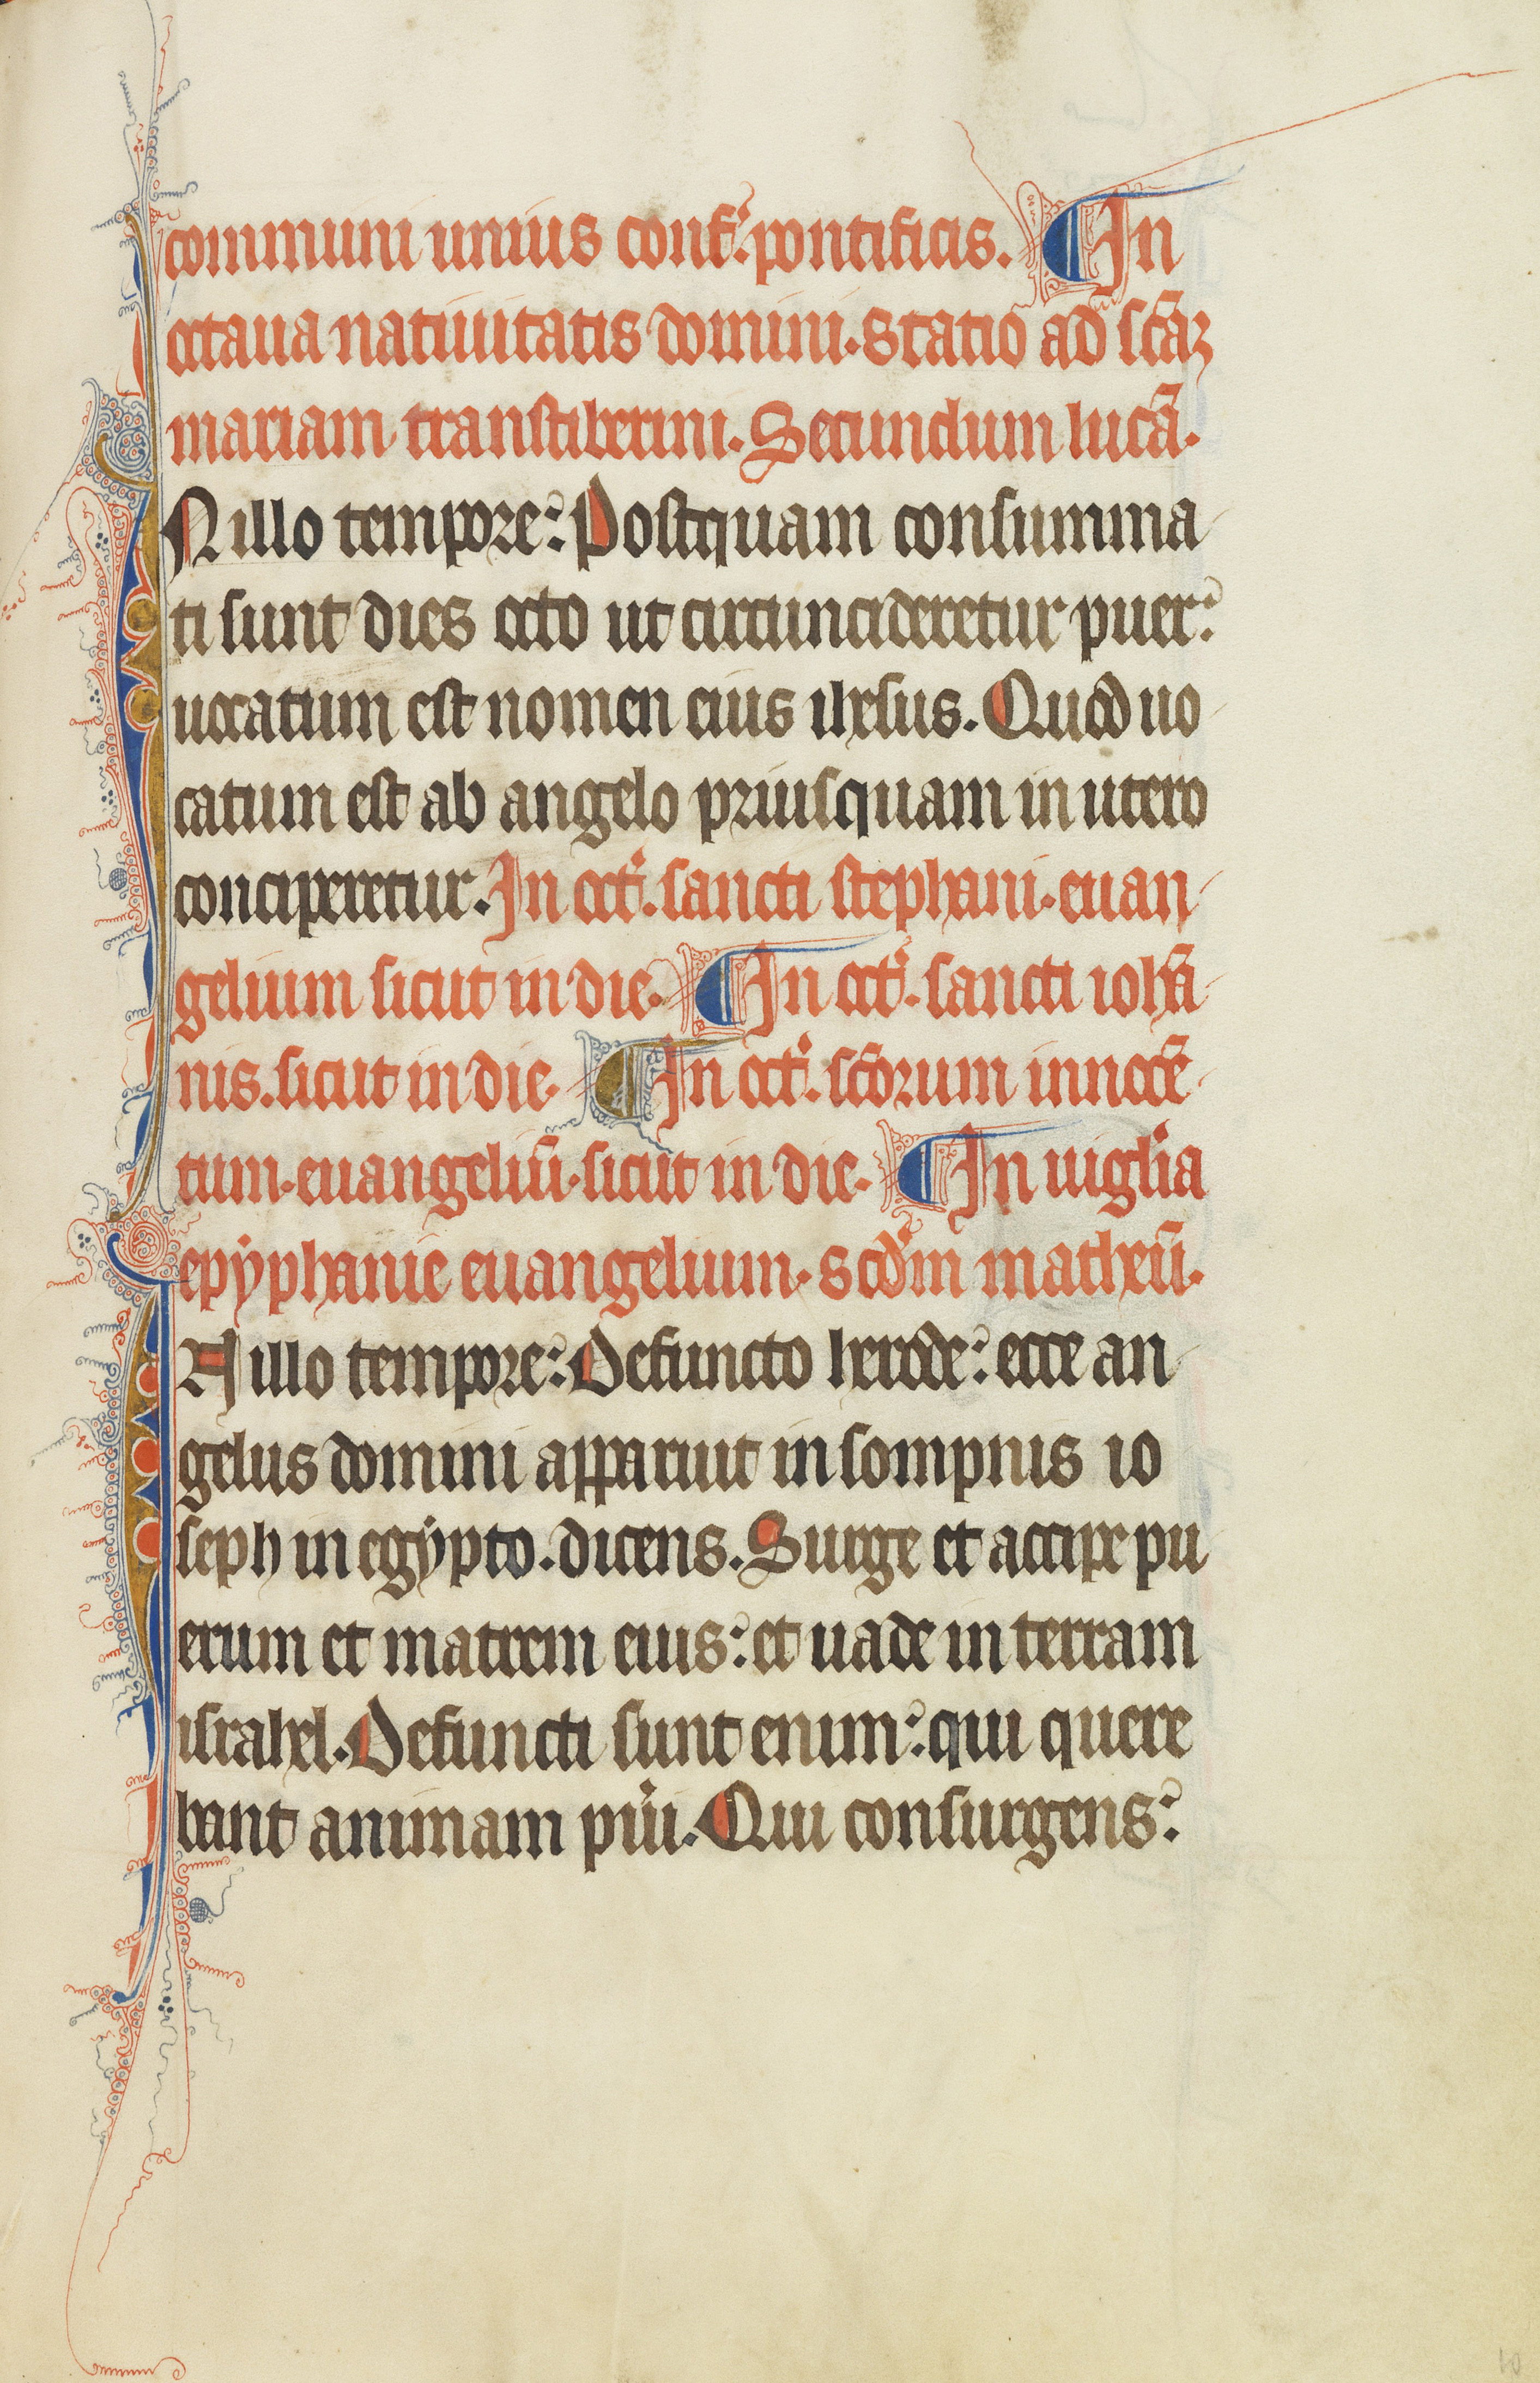 communi unius conf͛. pontificis. ¶ In
octaua natiuitatis domini. Statio ad sc̄aꝫ
mariam transtiberim. Secundum lucā.
IN illo tempore: Postquam consumma-
ti sunt dies octo ut circuncideretur puer:
uocatum est nomen eius ihesus. Quod uo-
catum est ab angelo priusquam in utero
conciperetur. In oct͛. sancti stephani. euan-
gelium sicut in die. ¶ In oct͛. sancti ioha̅-
nis. sicut in die. ¶ In oct͛. sc̄orum innocē-
tum. euangeliū. sicut in die. ¶ In uigl'ia
epyphanie euangelium. Scd̄m matheū.
IN illo tempore: Defuncto herode: ecce an-
gelus domini apparuit in sompnis io
seph in egypto. dicens. Surge et accipe pu-
erum et matrem eius: et uade in terram
israhel. Defuncti sunt enim: qui quere
bant animam pu̅i. Qui consurgens:
10